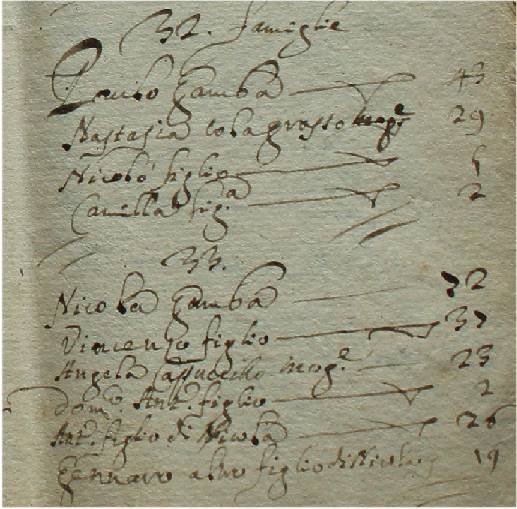 32. famiglie
Paulo Gamba 43
Nastasia Colagrosso mog.e 29
Nicolò figlio 5
Camilla fig.a 2
33.
Nicola Gamba 72
Vincenzo figlio 37
Angela Capuccillo mog.e 23
Dom.o Ant.o figlio 2
Ant.o figlio di Nicola 26
Gennaro altro figlio di Nicola 19